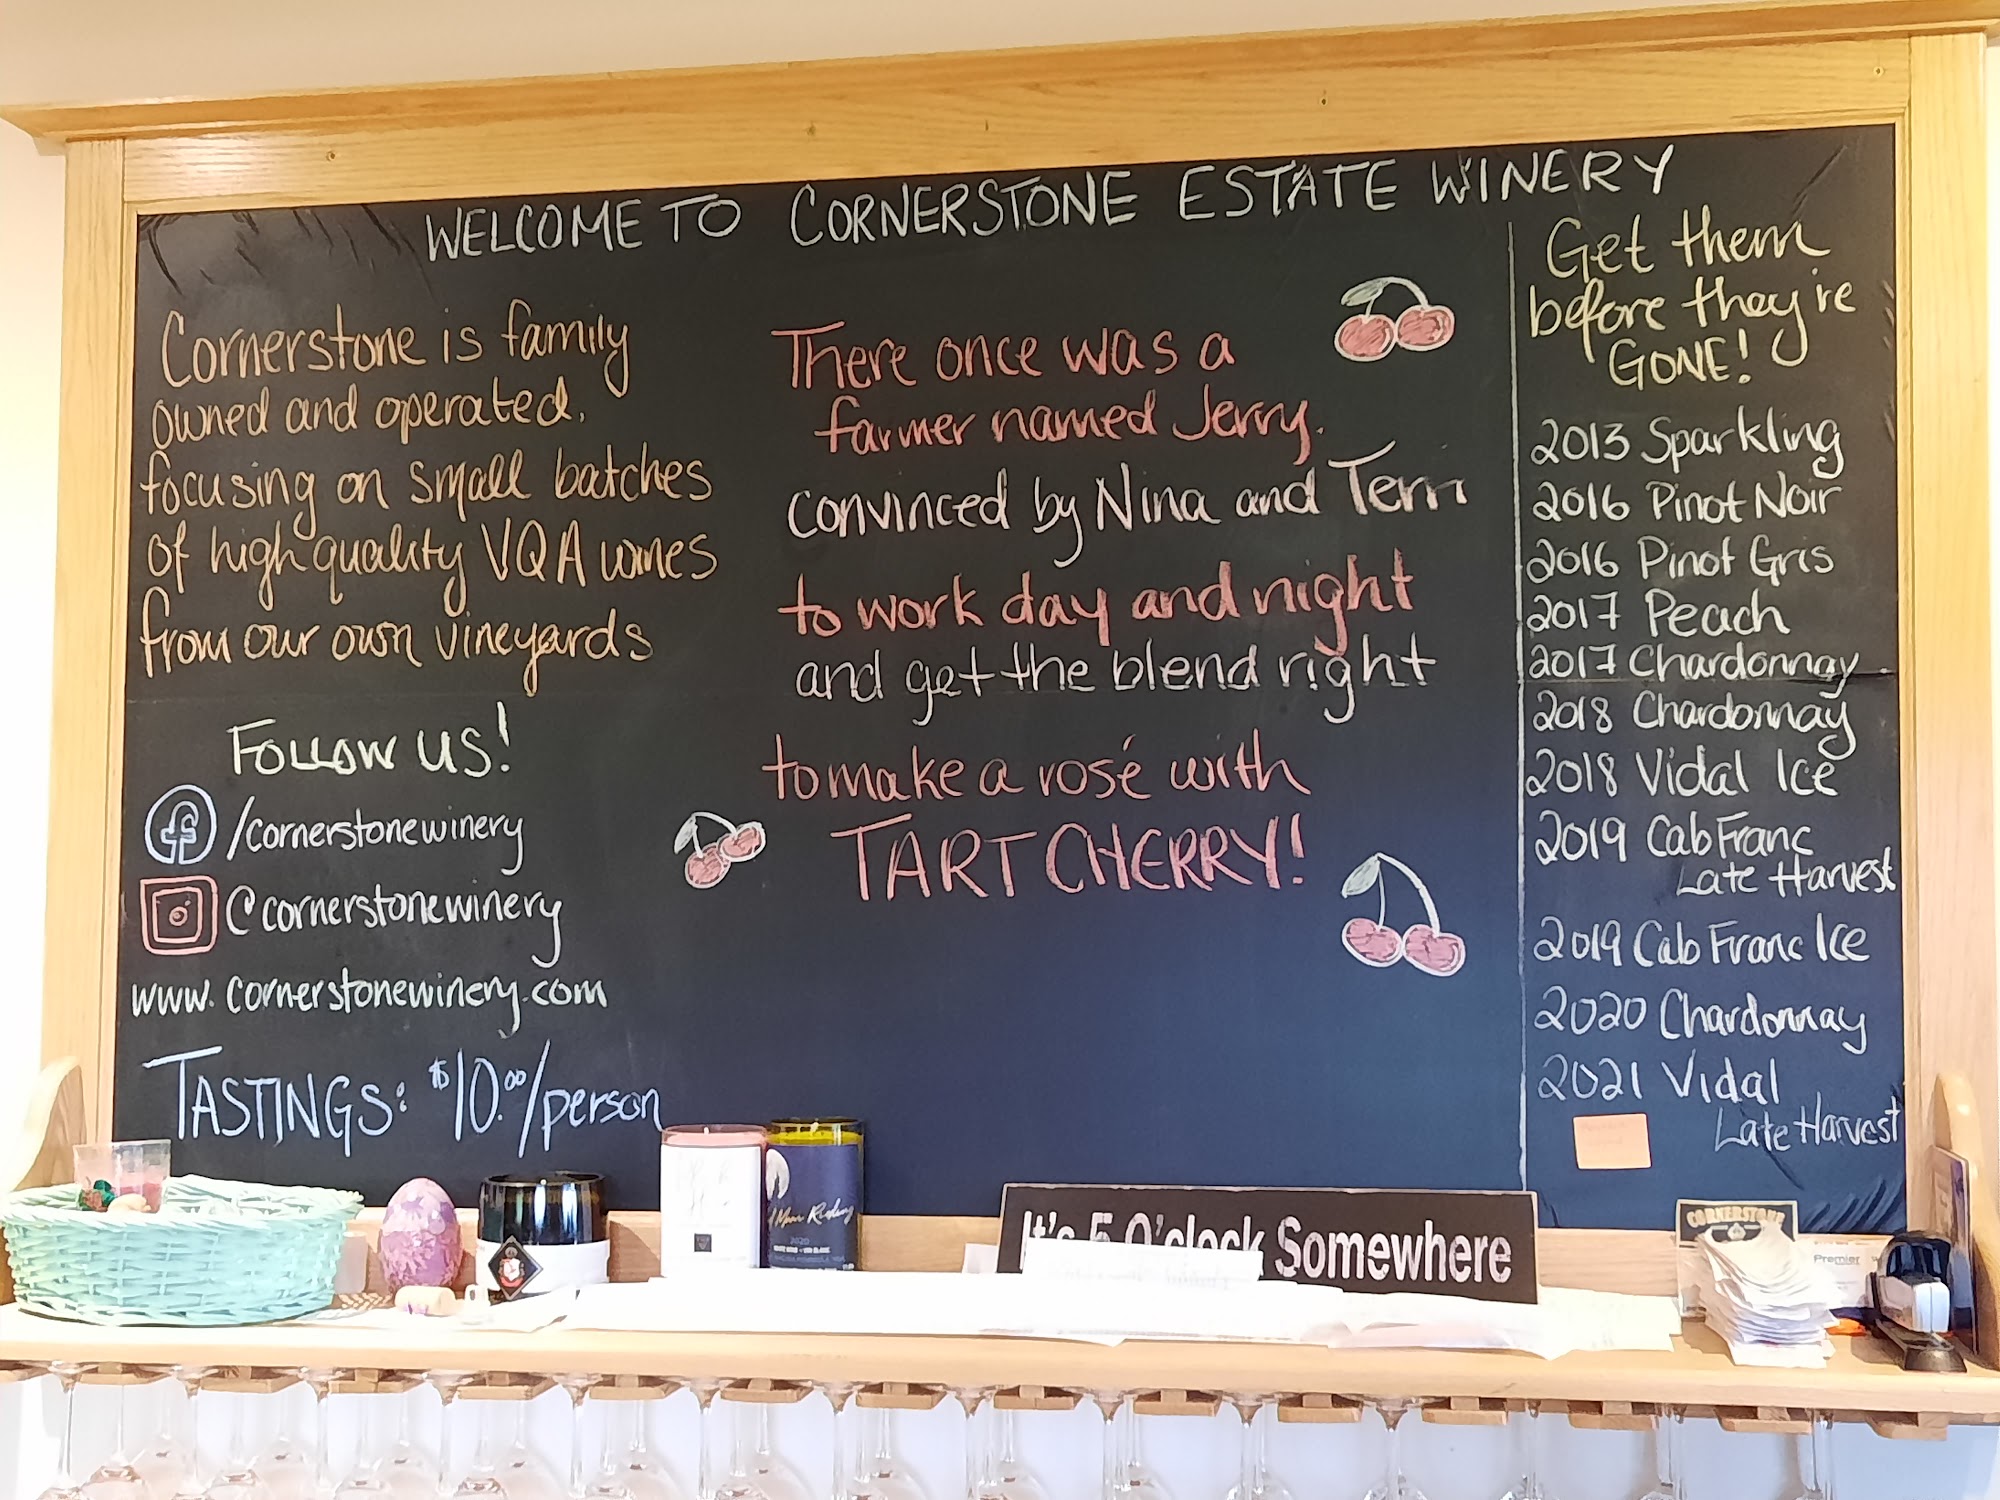 WELCOME TO CORNERSTONE ESTATE WINERY
Cornerstone is family
owned and operated,
focusing on small batches
of high quality VQA wines
from our own vineyards
FOLLOW US!
/cornerstonewinery
@cornerstonewinery
www.cornerstonewinery.com
TASTINGS: $10.00/person
There once was a
farmer named Jerry.
convinced by Nina and Terri
to work day and night
and get the blend right
to make a rosé with
TART CHERRY!
Get them
before they're
GONE!
2013 Sparkling
2016 Pinot Noir
2016 Pinot Gris
2017 Peach
2017 Chardonnay
2018 Chardonnay
2018 Vidal Ice
2019 Cab Franc
Late Harvest
2019 Cab Franc Ice
2020 Chardonnay
2021 Vidal
Late Harvest
2020
It's 5 O'clock Somewhere
CORNERSTONE
Premier